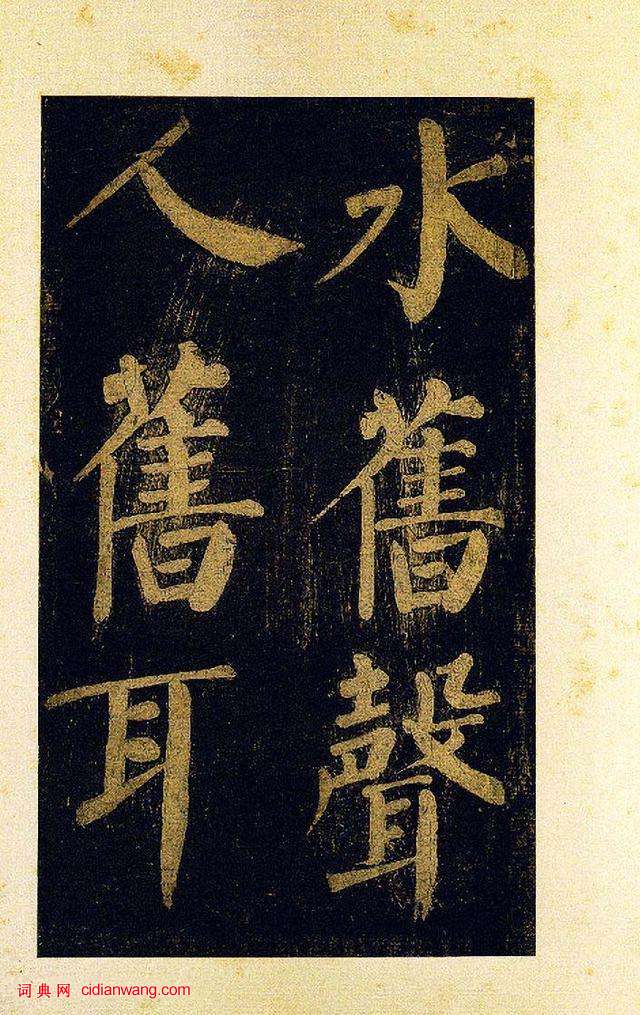 水舊聲
人舊耳
词典网 cidianwang.com